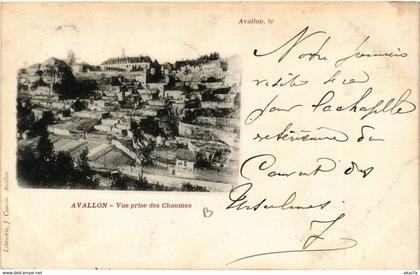 Avallon, le
Notre première
visite hier
pour la chapelle
extérieure du
Couvent des
Ursulines. J
AVALLON - Vue prise des Chaumes
B
Librairie, J. Couron, Avallon
akpool.fr